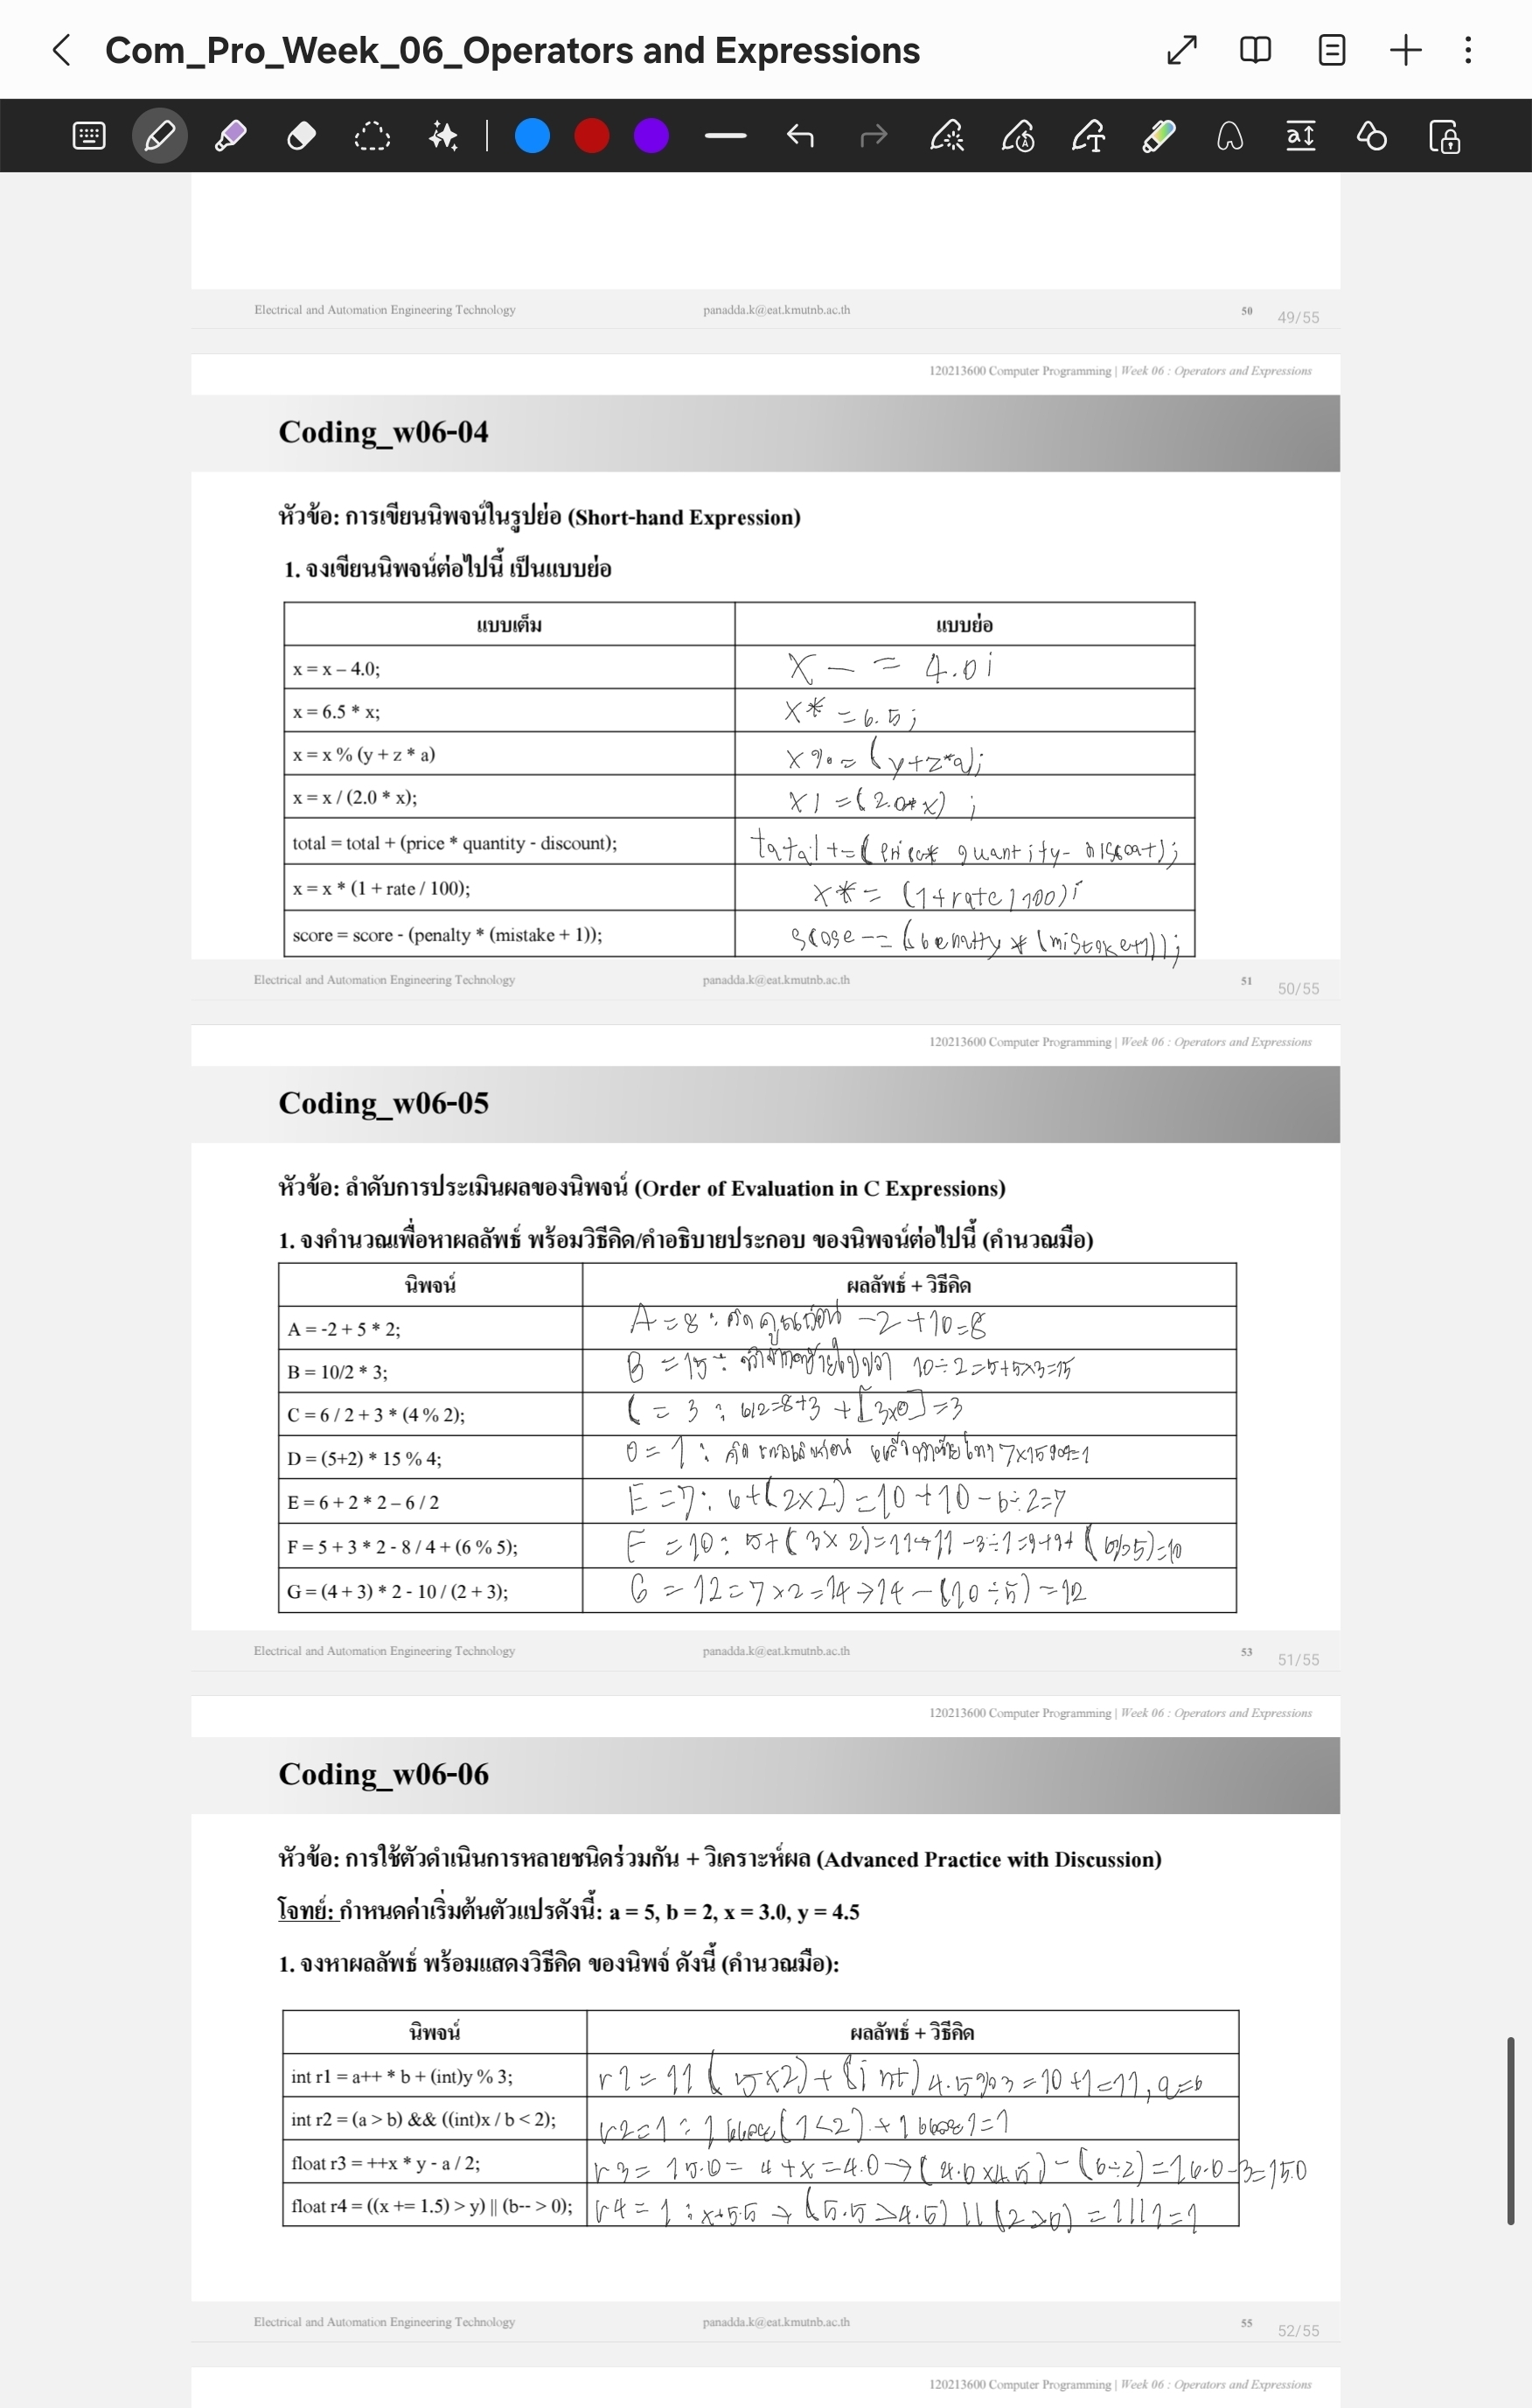 Com_Pro_Week_06_Operators and Expressions
Electrical and Automation Engineering Technology panadda.k@eat.kmutnb.ac.th 50 49/55
120213600 Computer Programming | Week 06 : Operators and Expressions
Coding_w06-04
หัวข้อ: การเขียนนิพจน์ในรูปย่อ (Short-hand Expression)
1. จงเขียนนิพจน์ต่อไปนี้ เป็นแบบย่อ
แบบเต็ม แบบย่อ
x = x – 4.0; X - = 4.0;
x = 6.5 * x; X* = 6.5;
x = x % (y + z * a) X %= (y+z*a);
x = x / (2.0 * x); X/ = (2.0*x) ;
total = total + (price * quantity - discount); += ( quantity-
x = x * (1 + rate / 100); x*= (1+rate/100);
score = score - (penalty * (mistake + 1)); -=
Electrical and Automation Engineering Technology panadda.k@eat.kmutnb.ac.th 51 50/55
120213600 Computer Programming | Week 06 : Operators and Expressions
Coding_w06-05
หัวข้อ: ลำดับการประเมินผลของนิพจน์ (Order of Evaluation in C Expressions)
1. จงคำนวณเพื่อหาผลลัพธ์ พร้อมวิธีคิด/คำอธิบายประกอบ ของนิพจน์ต่อไปนี้ (คำนวณมือ)
นิพจน์ ผลลัพธ์ + วิธีคิด
A = -2 + 5 * 2; A = 8 : คิดคูณก่อน -2 +10=8
B = 10/2 * 3; B = 15 : 10÷2=5→5x3=15
C = 6 / 2 + 3 * (4 % 2); C = 3 : + [3x0] =3
D = (5+2) * 15 % 4; D = 1 : คิด 7x15%4=1
E = 6 + 2 * 2 – 6 / 2 E =7: 6+(2x2) =10→10 -6÷2=7
F = 5 + 3 * 2 - 8 / 4 + (6 % 5); F =10: 5+(3x2)=11→11 (6%5)=10
G = (4 + 3) * 2 - 10 / (2 + 3); G = 12 = 7x2=14→14 -(10÷5) =12
Electrical and Automation Engineering Technology panadda.k@eat.kmutnb.ac.th 53 51/55
120213600 Computer Programming | Week 06 : Operators and Expressions
Coding_w06-06
หัวข้อ: การใช้ตัวดำเนินการหลายชนิดร่วมกัน + วิเคราะห์ผล (Advanced Practice with Discussion)
โจทย์: กำหนดค่าเริ่มต้นตัวแปรดังนี้: a = 5, b = 2, x = 3.0, y = 4.5
1. จงหาผลลัพธ์ พร้อมแสดงวิธีคิด ของนิพจ์ ดังนี้ (คำนวณมือ):
นิพจน์ ผลลัพธ์ + วิธีคิด
int r1 = a++ * b + (int)y % 3; r1 = 11 (5x2) + (int) 4.5%3 =10 +1 =11, a=6
int r2 = (a > b) && ((int)x / b < 2); r2=1 : 1 (1<2) → 1 1=1
float r3 = ++x * y - a / 2; r3 = 15.0 = ++x=4.0→ (4.0x4.5) - (6÷2) = -3=15.0
float r4 = ((x += 1.5) > y) || (b-- > 0); r4 = 1 : x=5.5 → (5.5 >4.5) || (2>0) = 1||1=1
Electrical and Automation Engineering Technology panadda.k@eat.kmutnb.ac.th 55 52/55
120213600 Computer Programming | Week 06 : Operators and Expressions